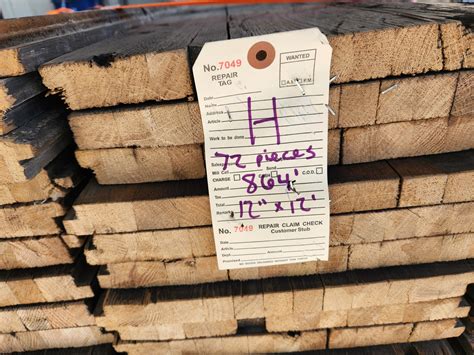 No. 7049
WANTED
REPAIR
TAG
A.M. P.M.
Date
Name
Address
Article
H
Work to be done
72 pieces
Will Call C.O.D.
CHARGE
864'
Amount
Tax
Total
12" x 12'
Remarks
No. 7049 REPAIR CLAIM CHECK
Customer Stub
Name
Article
Dept.
Promised